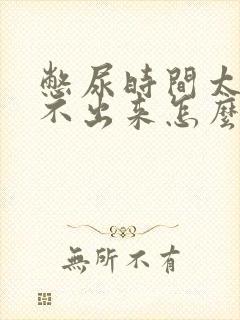 憋尿時間太
不出来怎麼
無所不有